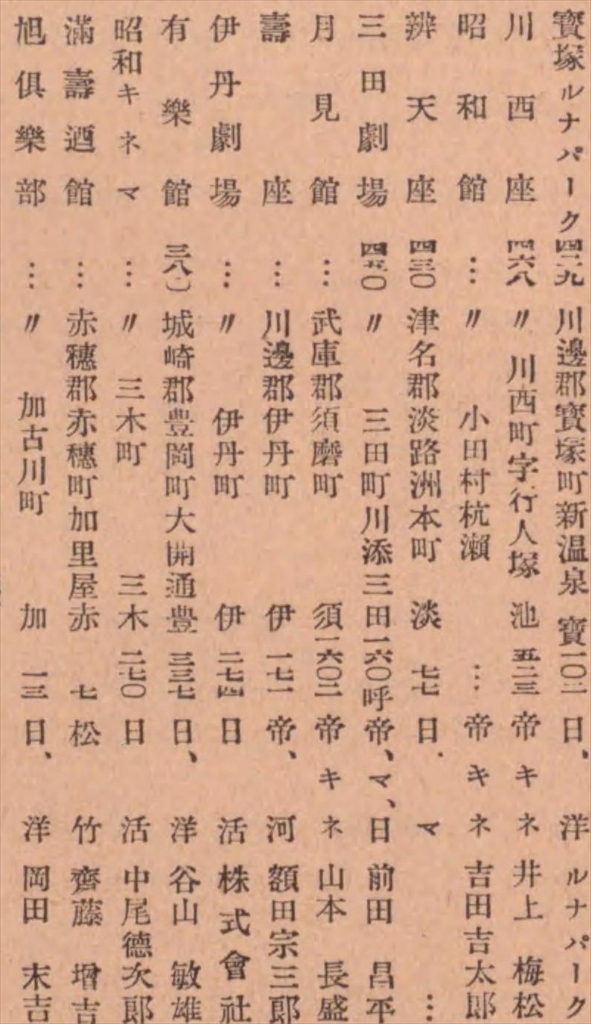 寶塚ルナパーク 四二九 川邊郡寶塚町新温泉 寶一〇二 日、洋 ルナパーク
川西座 四六八 〃 川西町字行人塚 池 五二三 帝キネ 井上梅松
昭和館 … 〃 小田村杭瀬 … 帝キネ 吉田吉太郎
辨天座 四三〇 津名郡淡路洲本町 淡 七七 日.マ …
三田劇場 四五〇 〃 三田町川添 三田一六〇呼 帝、マ、日 前田昌平
月見館 … 武庫郡須磨町 須一六〇二 帝キネ 山本長盛
壽座 … 川邊郡伊丹町 伊 一七一 帝、河 額田宗三郎
伊丹劇場 … 〃 伊丹町 伊 二七四 日活 株式會社
有樂館 三八〇 城崎郡豊岡町大開通 豊 三三七 日、洋 谷山敏雄
昭和キネマ … 〃 三木町 三木 二七〇 日活 中尾德次郎
滿壽迺館 … 赤穗郡赤穗町加里屋 赤 七 松竹 齊藤增吉
旭俱樂部 … 〃 加古川町 加 一三 日、洋 岡田末吉